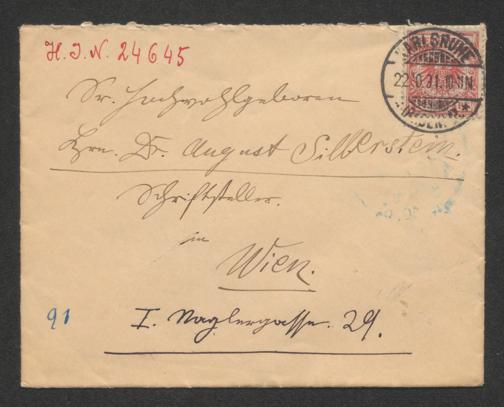 H. I. N. 24645
KARLSRUHE
22.10.91.
BADEN.
Sr. Hochwohlgeboren
Hrn. Dr. August Silberstein.
Schriftsteller.
in
Wien.
91
I. Naglergasse. 29.